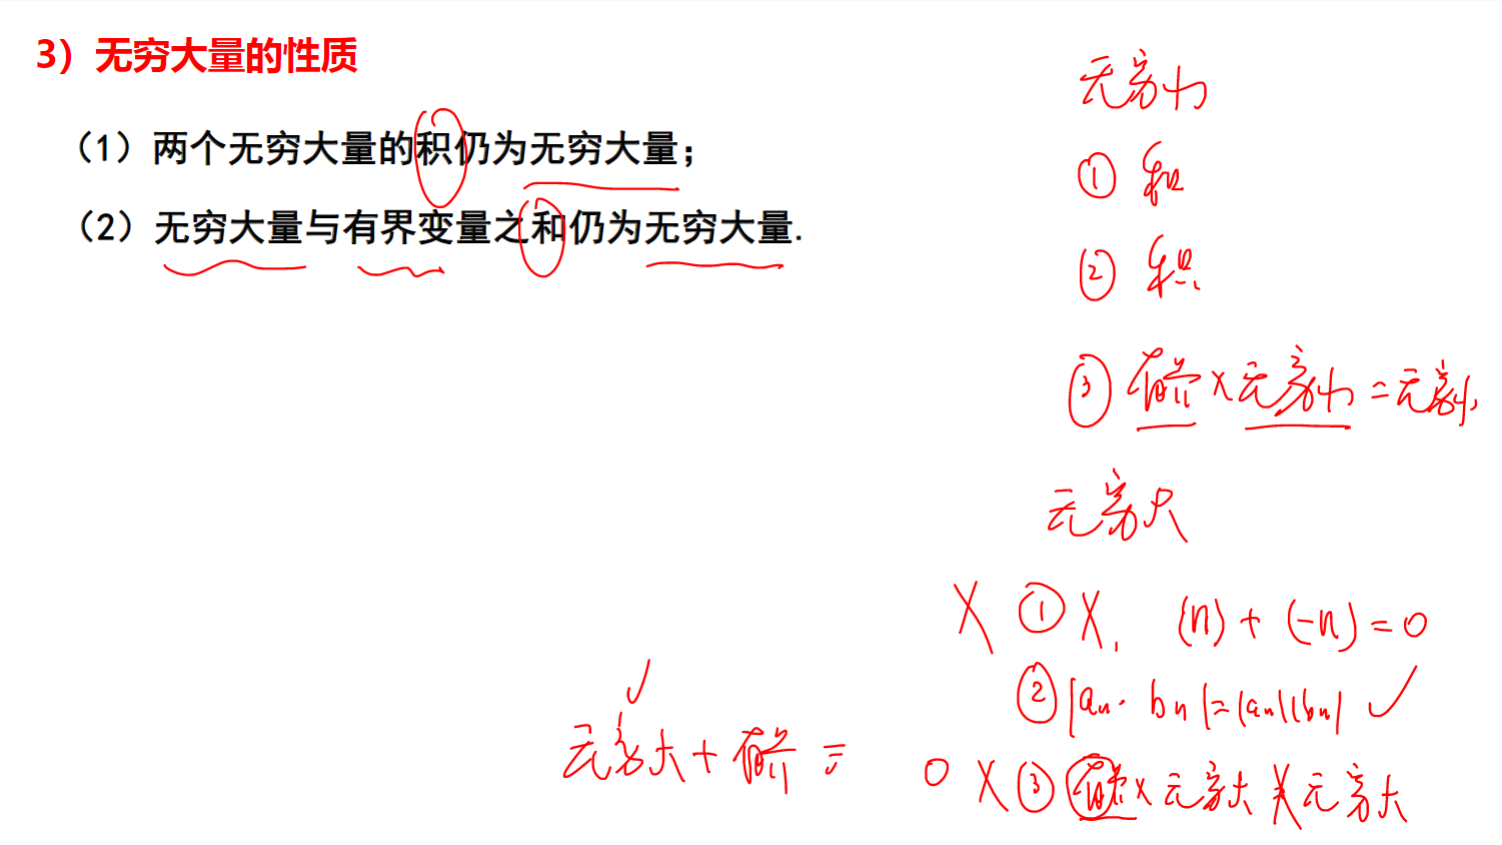 3）无穷大量的性质
（1）两个无穷大量的积仍为无穷大量；
（2）无穷大量与有界变量之和仍为无穷大量.
无穷小
① 和
② 积
③ 有界 × 无穷小 = 无穷小
无穷大
X ① X, (n) + (-n) = 0
② |aₙ · bₙ| = |aₙ||bₙ| ✓
✓
无穷大 + 有界 =
0 X ③ 有界 × 无穷大 ≠ 无穷大